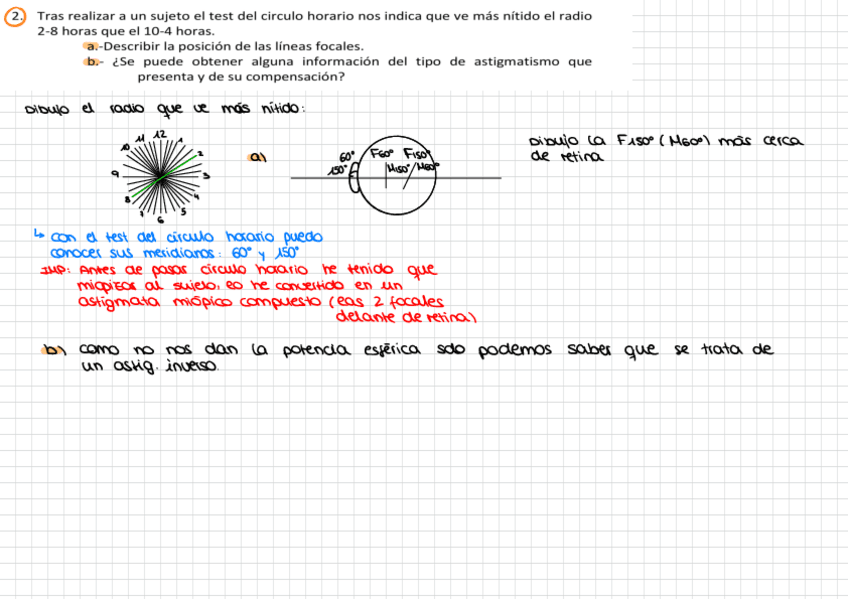 2. Tras realizar a un sujeto el test del circulo horario nos indica que ve más nítido el radio
2-8 horas que el 10-4 horas.
a.-Describir la posición de las líneas focales.
b.- ¿Se puede obtener alguna información del tipo de astigmatismo que
presenta y de su compensación?
Dibujo el radio que ve más nítido:
11 12 1
10 2
9 3
8 4
7 6 5
a)
60° F60° F150°
150° M150° / M60°
Dibujo la F150° (M60°) más cerca
de retina
↳ con el test del círculo horario puedo
conocer sus meridianos: 60° y 150°
IMP: Antes de pasar círculo horario he tenido que
miopizar al sujeto, lo he convertido en un
astigmata miópico compuesto (las 2 focales
delante de retina)
b) como no nos dan la potencia esférica solo podemos saber que se trata de
un astig. inverso.